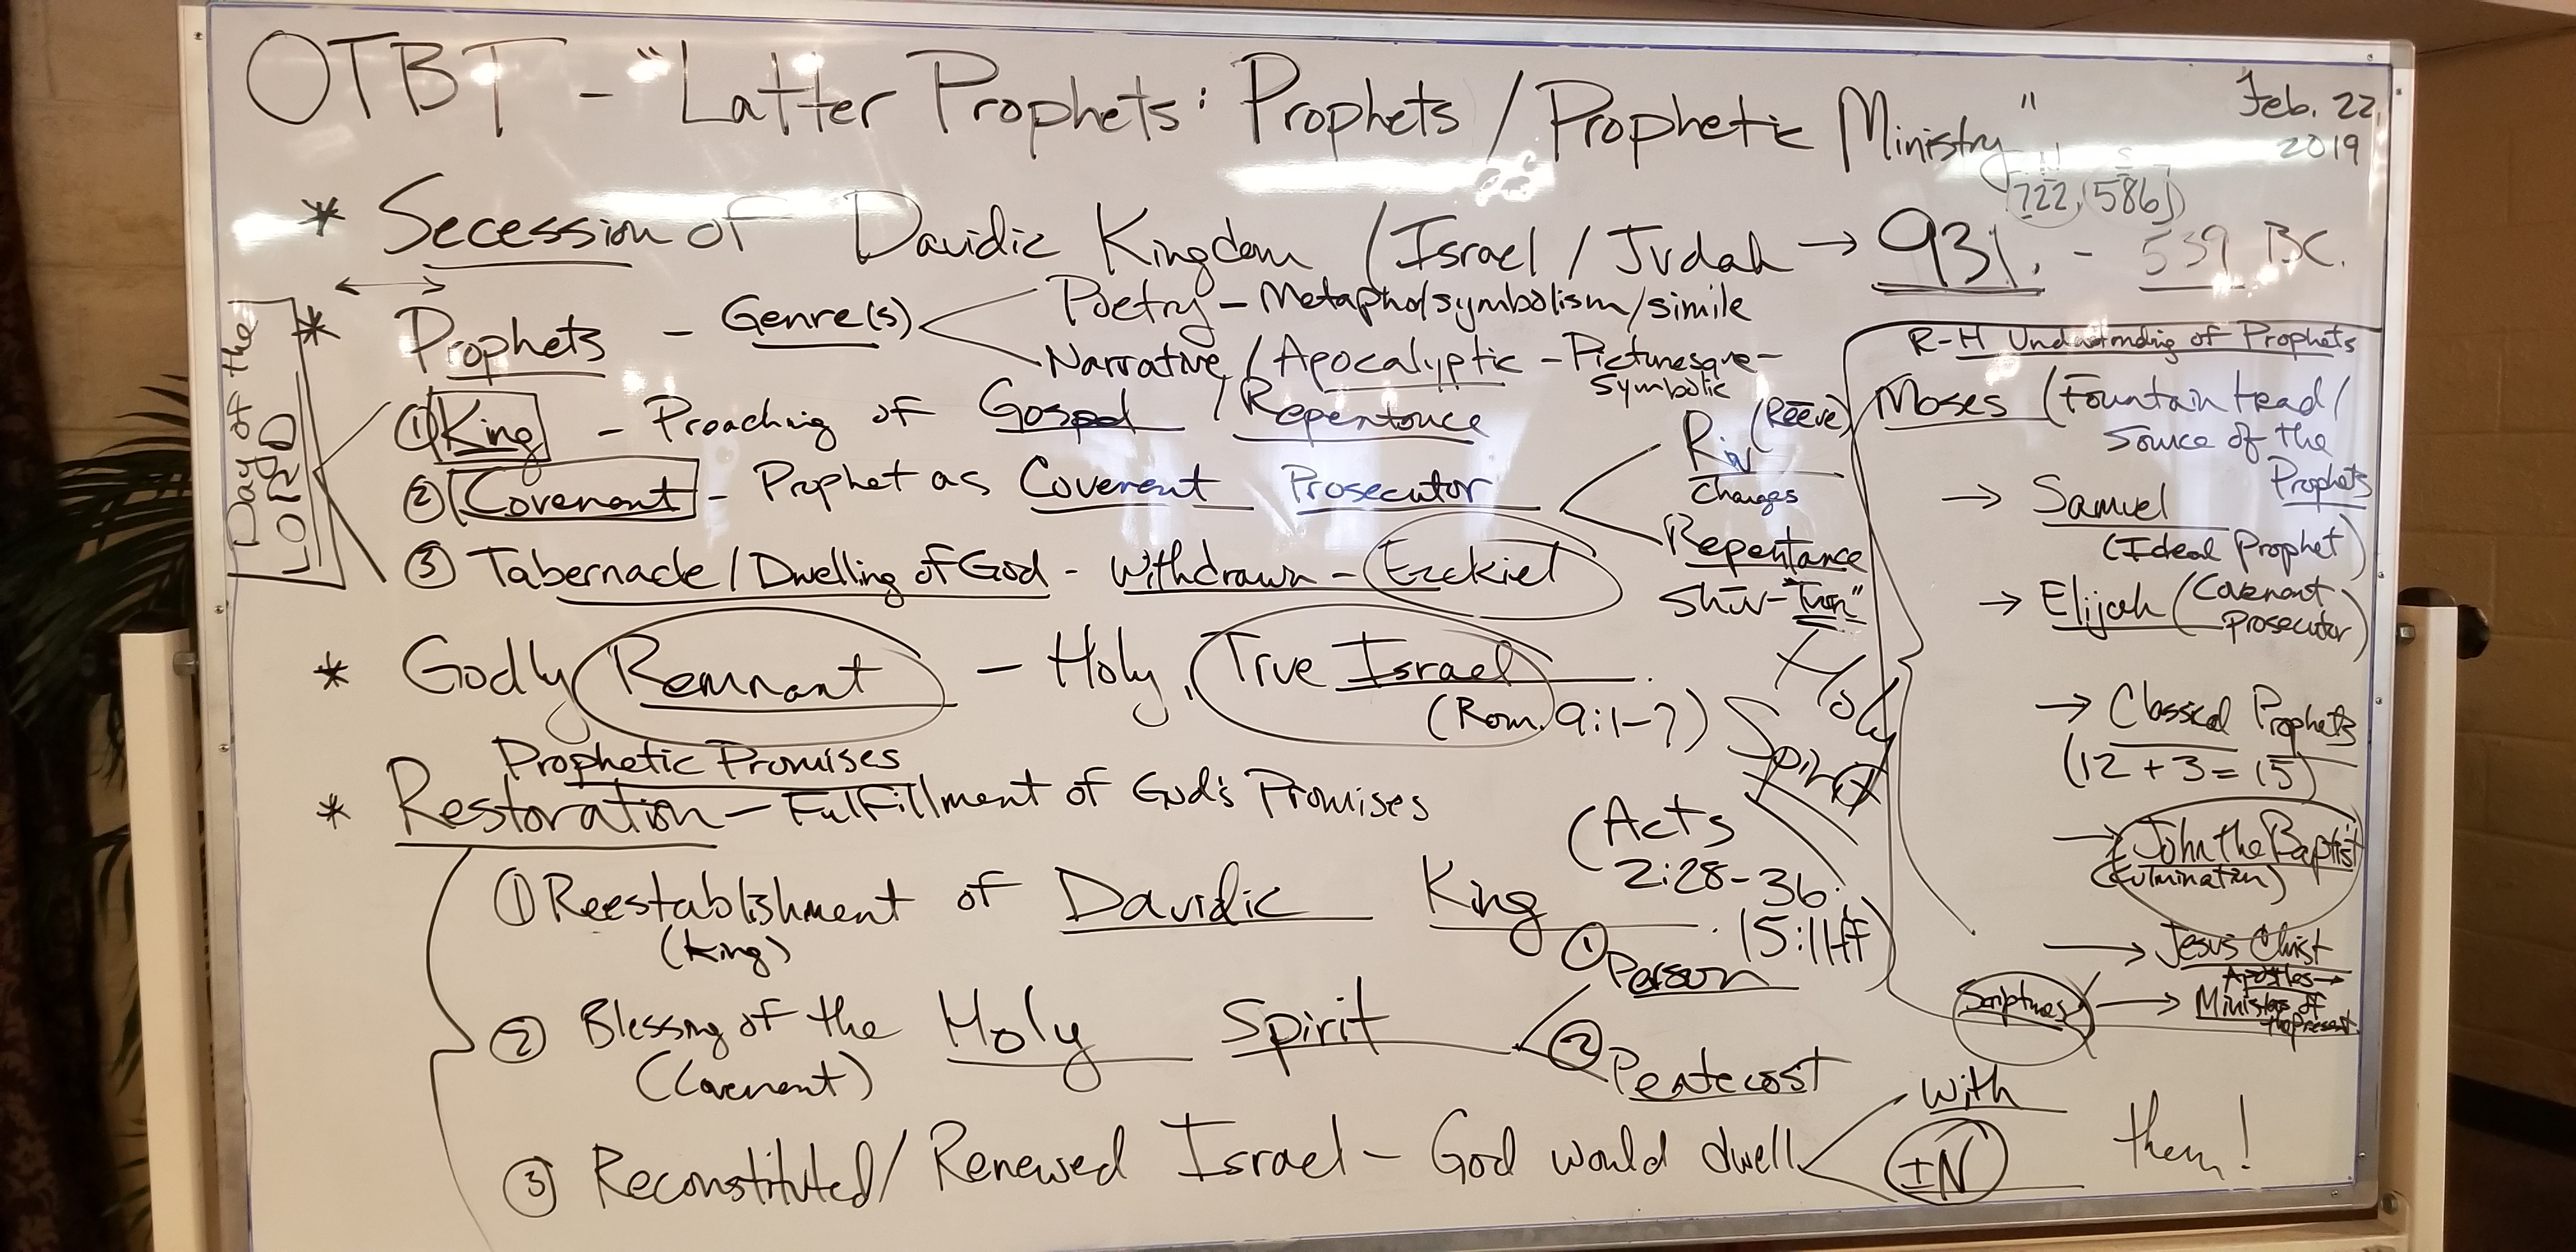 OTBT - "Latter Prophets: Prophets / Prophetic Ministry"
Feb. 22,
2019
N S
[722, 586]
* Secession of Davidic Kingdom / Israel / Judah → 931. - 539 BC.
* Prophets - Genre(s)
Poetry - Metaphor/symbolism/simile
Narrative / Apocalyptic - Picturesque -
Symbolic
Day of the
LORD
① King - Preaching of Gospel / Repentance
② Covenant - Prophet as Covenant Prosecutor
Riv (Reeve)
Charges
Repentance
Shuv - "Turn"
③ Tabernacle / Dwelling of God - Withdrawn - Ezekiel
* Godly Remnant - Holy, True Israel
(Rom. 9:1-7)
Holy
Spirit
Prophetic Promises
* Restoration - Fulfillment of God's Promises
① Reestablishment of Davidic King
(King)
(Acts
2:28-36;
15:11ff)
② Blessing of the Holy Spirit
(Covenant)
① Person
② Pentecost
③ Reconstituted / Renewed Israel - God would dwell
With
IN
them!
R-H Understanding of Prophets
Moses (Fountain Head /
Source of the
Prophets
→ Samuel
(Ideal Prophet)
→ Elijah (Covenant
Prosecutor)
→ Classical Prophets
(12 + 3 = 15)
→ John the Baptist
(Culmination)
→ Jesus Christ
Apostles →
Scriptures → Ministers of
the Present